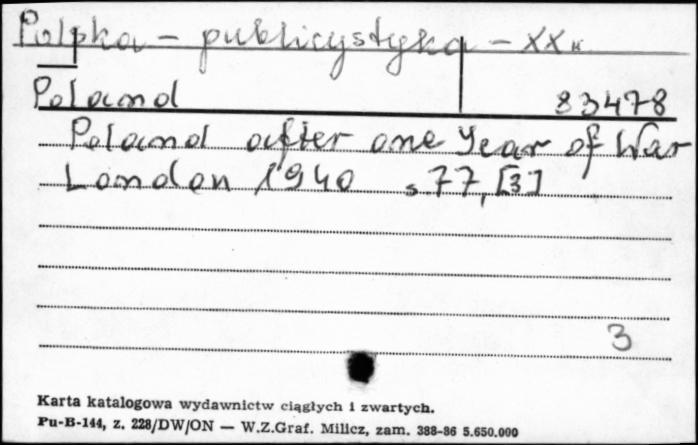 Polska - publicystyka - XX w
Poland 83478
Poland after one Year of War
London 1940 s. 77, [3]
3
Karta katalogowa wydawnictw ciągłych i zwartych.
Pu-B-144, z. 228/DW/ON — W.Z.Graf. Milicz, zam. 388-86 5.650.000